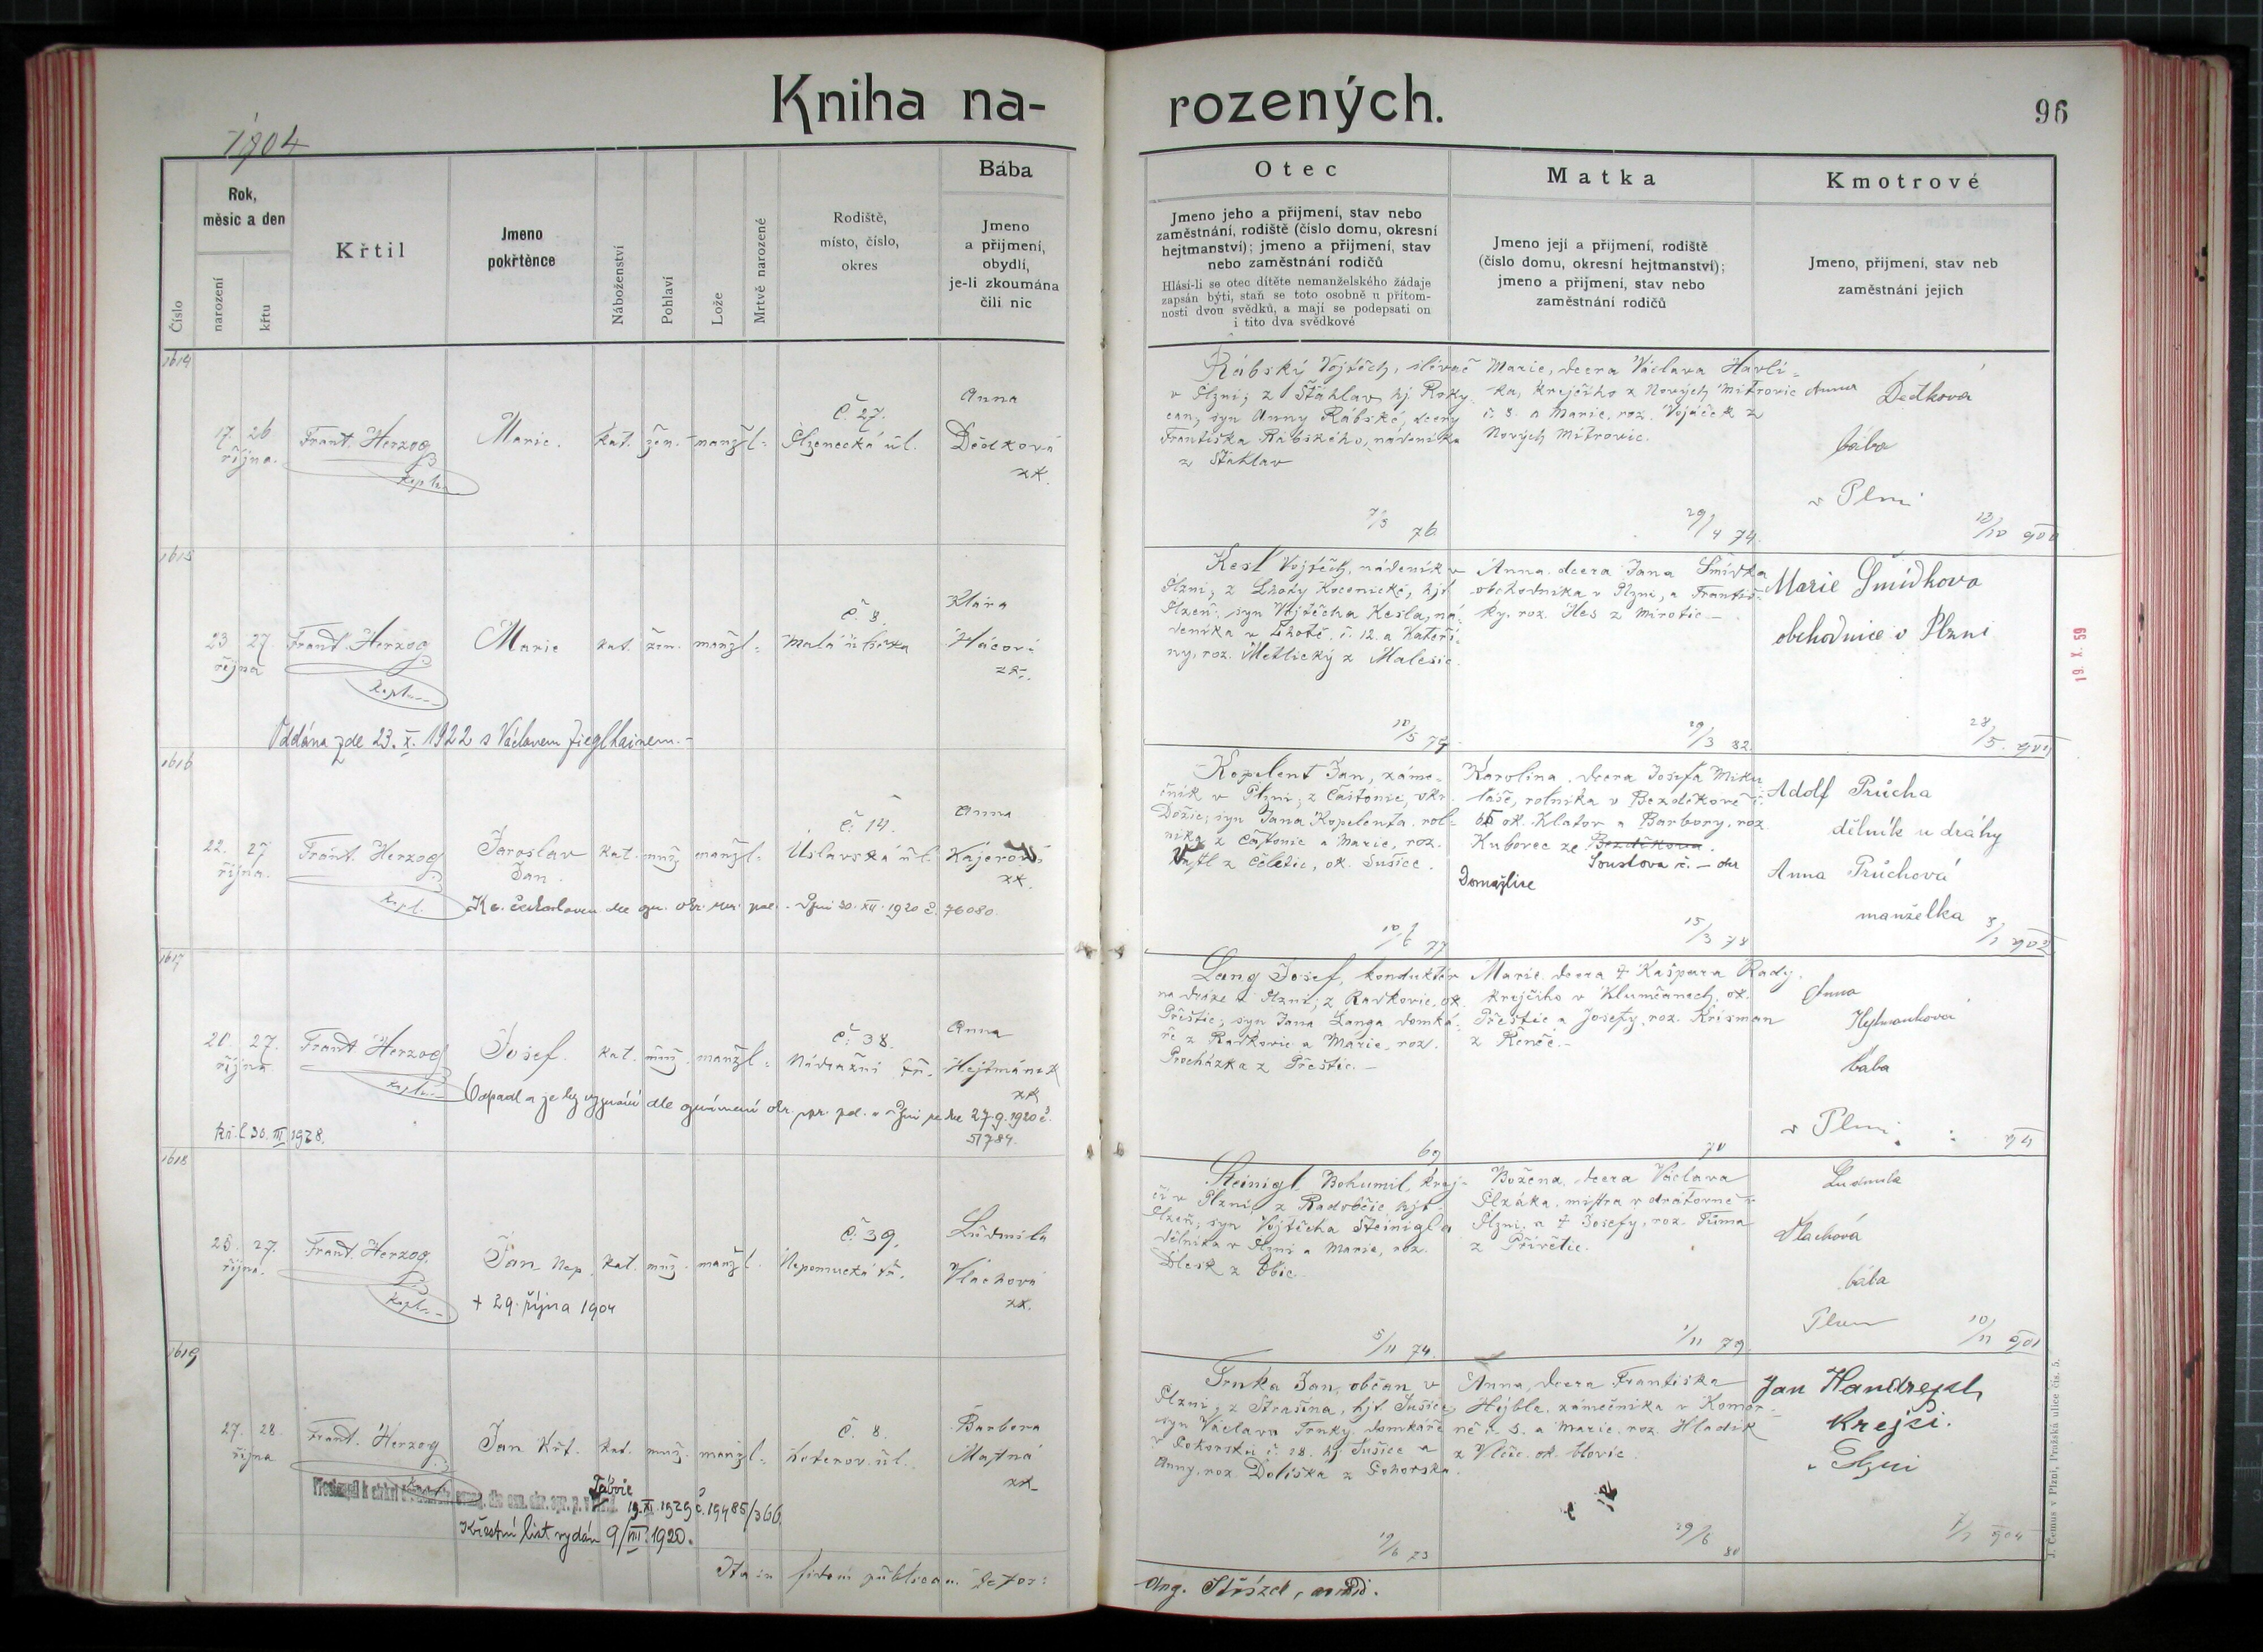 Kniha na-
rozených.
96
1904
Číslo
Rok,
měsíc a den
narození
křtu
Křtil
Jmeno
pokřtěnce
Náboženství
Pohlaví
Lože
Mrtvě narozené
Rodiště,
místo, číslo,
okres
Bába
Jmeno
a příjmení,
obydlí,
je-li zkoumána
čili nic
Otec
Jmeno jeho a příjmení, stav nebo
zaměstnání, rodiště (číslo domu, okresní
hejtmanství); jmeno a příjmení, stav
nebo zaměstnání rodičů
Hlásí-li se otec dítěte nemanželského žádaje
zapsán býti, staň se toto osobně u přítom-
nosti dvou svědků, a mají se podepsati on
i tito dva svědkové
Matka
Jmeno její a příjmení, rodiště
(číslo domu, okresní hejtmanství);
jmeno a příjmení, stav nebo
zaměstnání rodičů
Kmotrové
Jmeno, příjmení, stav neb
zaměstnání jejich
1614
17. 26
října.
Frant. Herzog
kapl.
Marie.
kat. žen. manžl.
Č. 27.
Plzenecká ul.
Anna
Dědková
zk.
Rábský Vojtěch, slévač
v Plzni; z Šťáhlav hj. Roky
can, syn Anny Rábské, dcery
Františka Rábského, nádeníka
z Šťáhlav
7/3 76
Marie, dcera Václava Havlí-
ka, krejčího z Nových Mitrovic
č. 8. a Marie, roz. Vojáček z
Nových Mitrovic.
29/4 74.
Anna Dedková
bába
v Plzni
13/10 900
1615
23 27.
října
Frant. Herzog
kapl.
Marie
kat. žen. manžl.
Č. 8.
Malá ulička
Klára
Hácová
zk.
Oddána zde 23. X. 1922 s Václavem Zieglhainem.-
Kesl Vojtěch, nádeník v
Plzni, z Lhoty Kocenické, hjt
Plzeň, syn Vojtěcha Kesla, ná-
deníka v Lhotě, č. 12. a Kateři-
ny, roz. Metlický z Malesic.
10/5 79.
Anna. dcera Jana Šmídka
obchodníka v Plzni, a Františ-
ky, roz. Hes z Mirotic.-
29/3 82.
Marie Šmídkova
obchodnice v Plzni
28/5. 901
19. X. 59
1616
22. 27
října.
Frant. Herzog
kapl.
Jaroslav
Jan.
kat. muž. manžl.
Č. 14.
Úslavská ul.
Anna
Kajerová
zk.
Kopelent Jan, záme-
čník v Plzni; z Částonic, okr.
syn Jana Kopelenta. rol-
níka z Částonic a Marie, roz.
z Čeletic, ok. Sušice.
10/6 77
Karolina. dcera Josefa Miku
láše, rolníka v Bezděkově č.
65 ok. Klatov a Barbory, roz
Kubovec ze Bezděkova.
Soustova č. – okr
Domažlice
15/3 78
Adolf Průcha
dělník u dráhy
Anna Průchová
manželka
8/1 902
1617
20. 27.
října
Frant. Herzog
kapl.
Josef.
kat. muž. manžl.
Č. 38.
Nádražní tř.
Anna
Hejtmánek
zk
Odpadl a je bez vyznání dle oznámení okr. spr. pol. v Plzni ze dne 27.9.1920 č.
51784.
kř. l. 30. III 1928.
Lang Josef, konduktér
na dráze v Plzni; z Radkovic, ok.
Přeštic; syn Jana Langa domká-
ře z Radkovic a Marie, roz.
Procházka z Přeštic.–
69
Marie. dcera † Kašpara Rady.
krejčího v Klumčanech, ok.
Přeštic a Josefy, roz. Krisman
z Řenče.–
70
Anna
Hejtmanková
baba
v Plzni.
94
1618
25. 27.
října.
Frant. Herzog.
kapl.
Jan Nep.
kat. muž. manžl.
Č. 39.
Nepomucká tř.
Ludmila
Vlachová
zk.
+ 29. října 1904
Steinigl Bohumil, krej-
čí v Plzni, z Radobčic, hjt.
Plzeň; syn Vojtěcha Steinigla
dělníka v Plzni a Marie, roz.
Dlesk z Obic.
5/11 74.
Božena. dcera Václava
Plzáka, mistra v drátovně v
Plzni. a † Josefy, roz. Tůma
z Přívětic.
1/11 79.
Ludmila
Vlachová
bába
Plzen
10/11 901
1619
27. 28.
října
Frant. Herzog
Jan Křt.
kat. muž. manžl.
Č. 8.
Koterov. ul.
Barbora
Mastná
zk.
Táboře
19. XI. 1929 č. 19485/366
Křestní list vydán 9/VIII. 1920.
Trnka Jan, občan v
Plzni; z Strašína, hjt. Sušice
syn Václava Trnky, domkáře
v Pohorsku č. 28. hj. Sušice a
Anny, roz. Doliška z Pohorska.
12/6 73
Anna, dcera Františka
Hejble, zámečníka v Komor-
ně č. 5. a Marie, roz. Hladík
z Vlčic. ok. Blovic.
29/6 80
Jan Handrejch
Krejčí.
v Plzni
7/2 904
Ita in fidem publicam depos:
Ang. Střízek,
J. Černus v Plzni, Pražská ulice čís. 5.